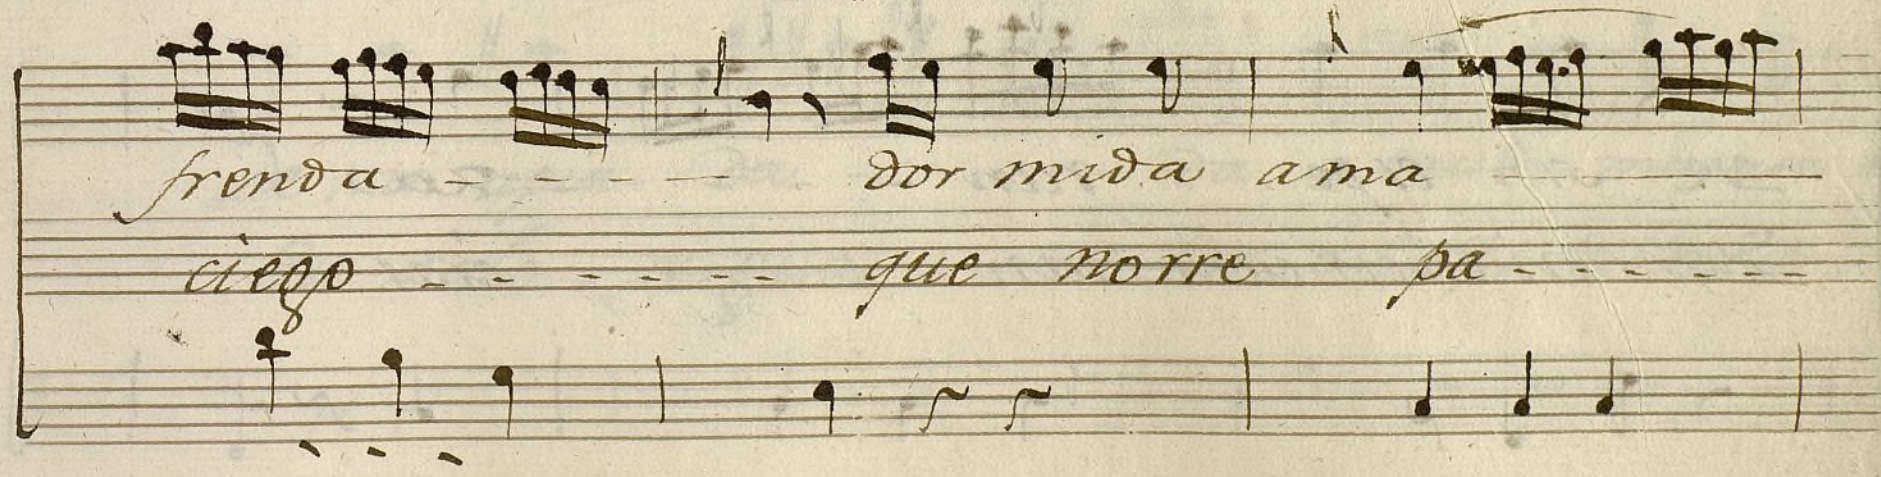 frenda - - - - - dor mida ama
ciego - - - - - - que norre pa - - - - - -